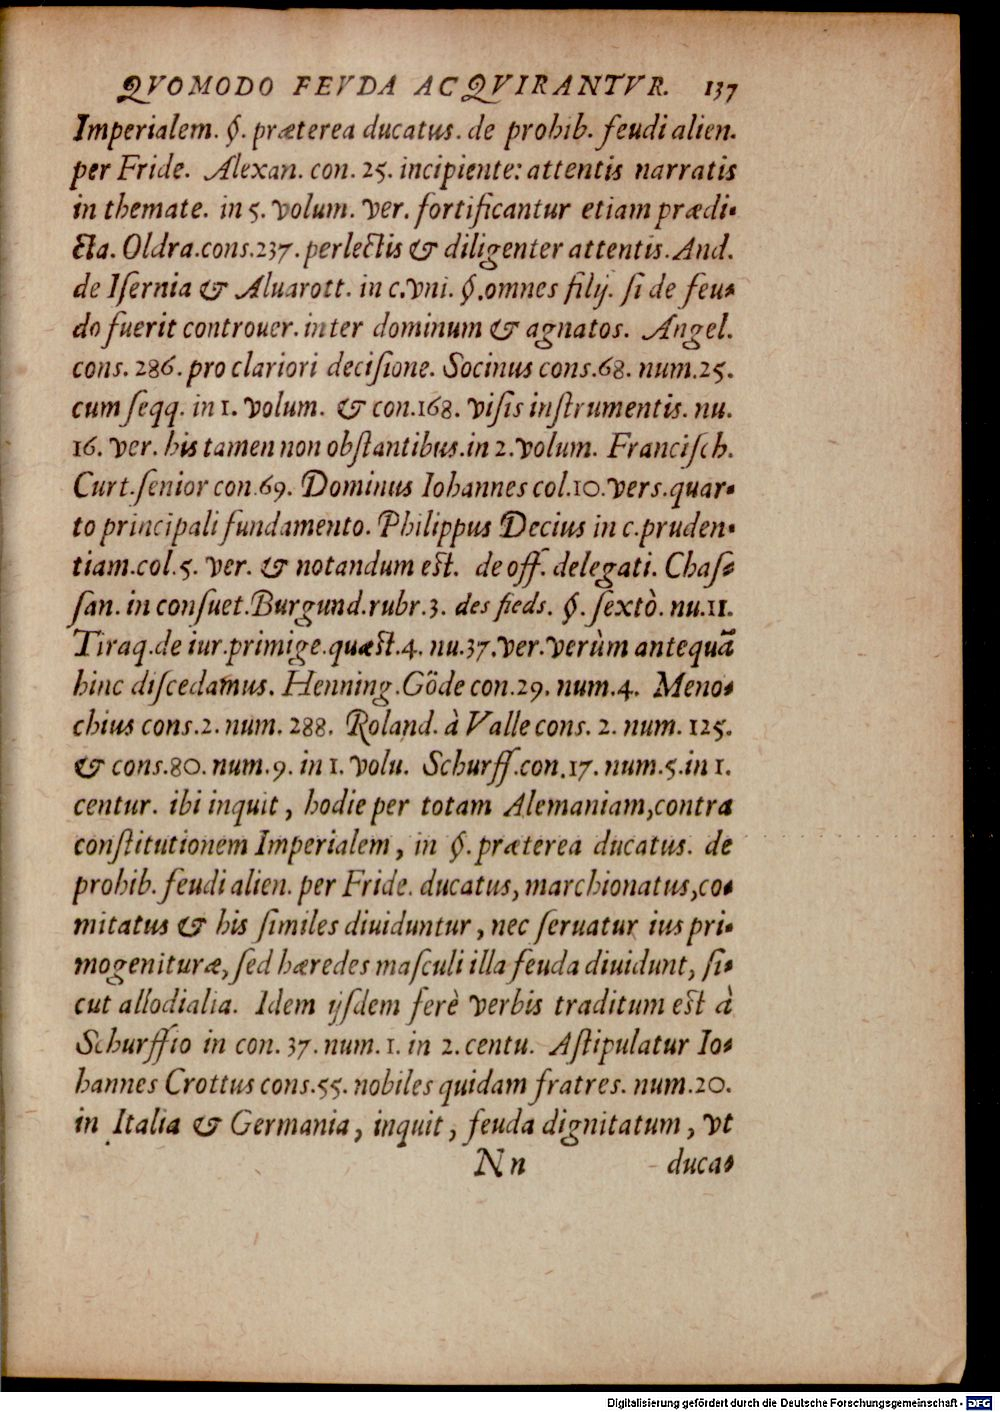 QVOMODO FEVDA ACQVIRANTVR. 137
Imperialem. §. præterea ducatus. de prohib. feudi alien.
per Fride. Alexan. con. 25. incipiente: attentis narratis
in themate. in 5. volum. ver. fortificantur etiam prædi-
cta. Oldra.cons.237. perlectis & diligenter attentis. And.
de Iſernia & Aluarott. in c.vni. §.omnes filij. ſi de feu-
do fuerit controuer. inter dominum & agnatos. Angel.
cons. 286. pro clariori deciſione. Socinus cons.68. num.25.
cum ſeqq. in 1. volum. & con.168. viſis inſtrumentis. nu.
16. ver. his tamen non obſtantibus.in 2.volum. Franciſch.
Curt.ſenior con.69. Dominus Iohannes col.10.vers.quar-
to principali fundamento. Philippus Decius in c.pruden-
tiam.col.5. ver. & notandum est. de off. delegati. Chaſ-
ſan. in conſuet.Burgund.rubr.3. des fieds. §. ſextò. nu.11.
Tiraq.de iur.primige.quæst.4. nu.37.ver.verùm antequā
hinc diſcedamus. Henning.Göde con.29. num.4. Meno-
chius cons.2. num. 288. Roland. à Valle cons. 2. num. 125.
& cons.80. num.9. in 1. volu. Schurff.con.17. num.5.in 1.
centur. ibi inquit, hodie per totam Alemaniam,contra
conſtitutionem Imperialem, in §. præterea ducatus. de
prohib. feudi alien. per Fride. ducatus, marchionatus,co-
mitatus & his ſimiles diuiduntur, nec ſeruatur ius pri-
mogenituræ, ſed hæredes maſculi illa feuda diuidunt, ſi-
cut allodialia. Idem ijſdem ferè verbis traditum est à
Schurffio in con. 37. num. 1. in 2. centu. Aſtipulatur Io-
hannes Crottus cons.55. nobiles quidam fratres. num.20.
in Italia & Germania, inquit, feuda dignitatum, vt
Nn duca-
Digitalisierung gefördert durch die Deutsche Forschungsgemeinschaft - DFG